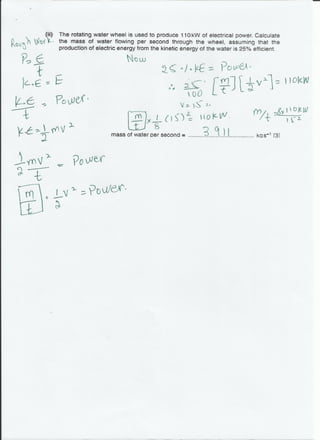 (ii) The rotating water wheel is used to produce 110kW of electrical power. Calculate
the mass of water flowing per second through the wheel, assuming that the
production of electric energy from the kinetic energy of the water is 25% efficient.
Rough Work.
P = E/t
K.E = E
K.E/t = Power.
K.E = 1/2 mv²
Now
25 % KE = Power.
∴ 25/100 [m/t] [1/2 v²] = 110kW
V = 15
[m/t] × 1/8 (15)² = 110kW
mass of water per second = 3 911 kg s⁻¹ [3]
1/2 mv²/t = Power
[m/t] × 1/2 v² = Power.